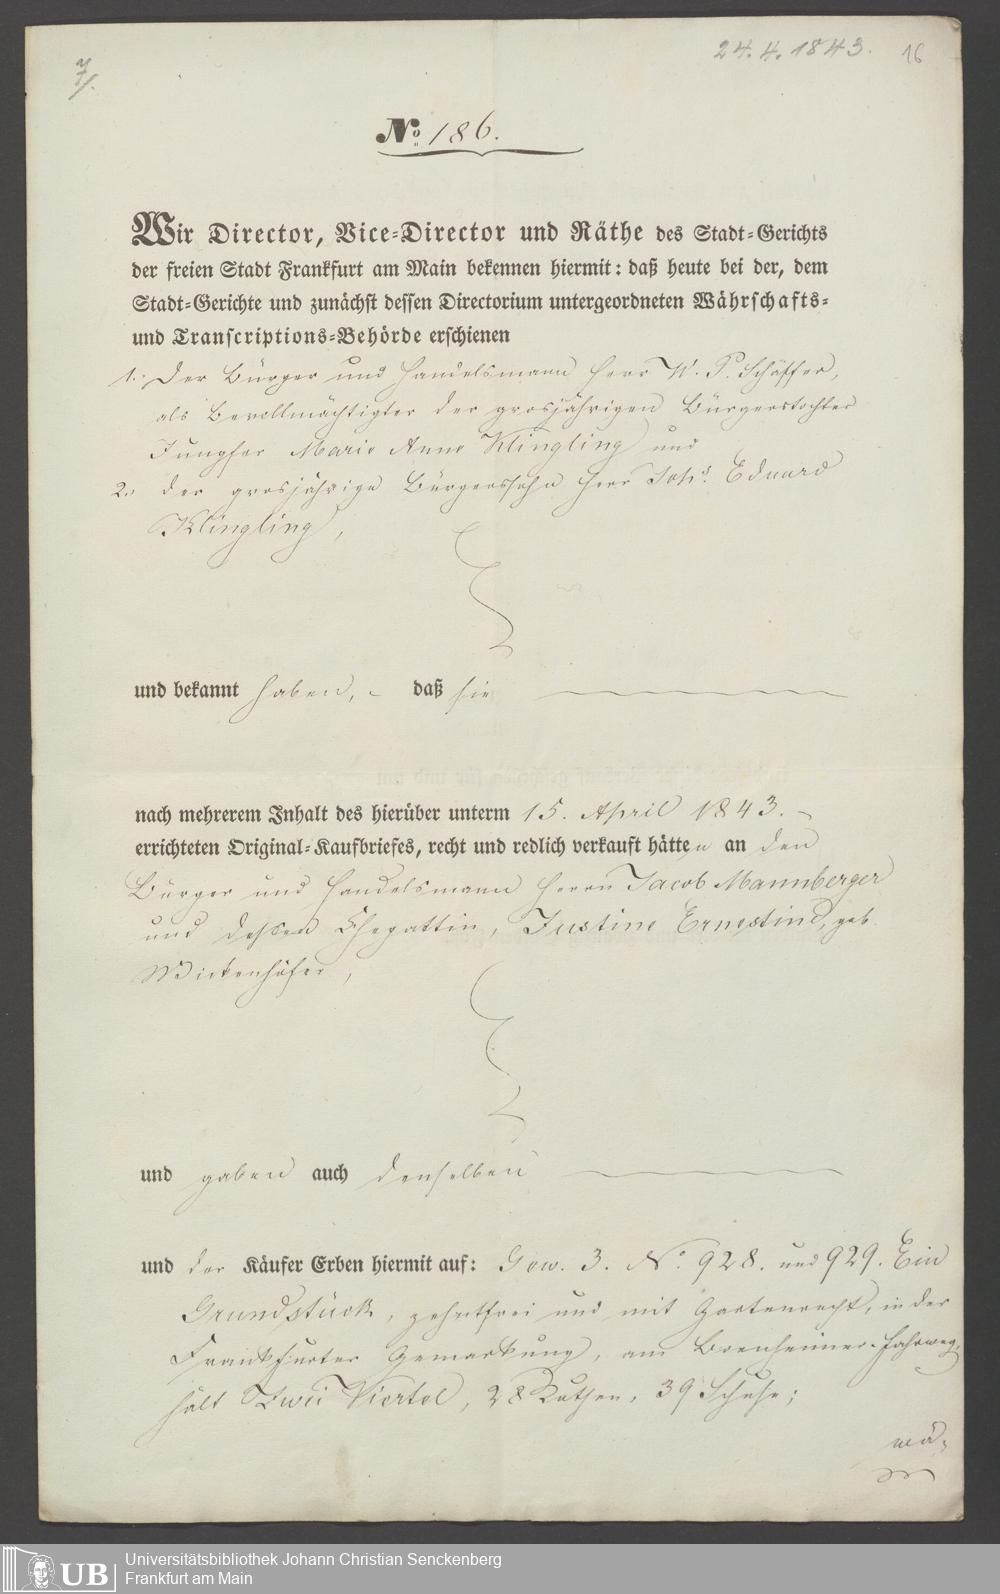 7/.
24.4.1843.
16
No. 186.
Wir Director, Vice-Director und Räthe des Stadt-Gerichts
der freien Stadt Frankfurt am Main bekennen hiermit: daß heute bei der, dem
Stadt-Gerichte und zunächst dessen Directorium untergeordneten Währschafts-
und Transcriptions-Behörde erschienen
1. Der Bürger und Handelsmann Herr W. P. Schäffer,
als Bevollmächtigter der grosjährigen Bürgerstochter
Jungfer Marie Anne Klingling und
2. der grosjährige Bürgerssohn Herr Johs. Eduard
Klingling,
und bekannt haben, daß sie
nach mehrerem Inhalt des hierüber unterm 15. April 1843.
errichteten Original-Kaufbriefes, recht und redlich verkauft hätten an den
Bürger und Handelsmann Herrn Jacob Mannberger
und dessen Ehegattin, Justine Ernestine, geb.
Wickenhöfer,
und gaben auch denselben
und der Käufer Erben hiermit auf: Gew. 3. No. 928. und 929. Ein
Grundstück, zehntfrei und mit Gartenrecht, in der
Frankfurter Gemarkung, am Bornheimer-Fahrweg,
hält Zwei Viertel, 28 Ruthen, 39 Schuhe;
wä-
Universitätsbibliothek Johann Christian Senckenberg
UB Frankfurt am Main